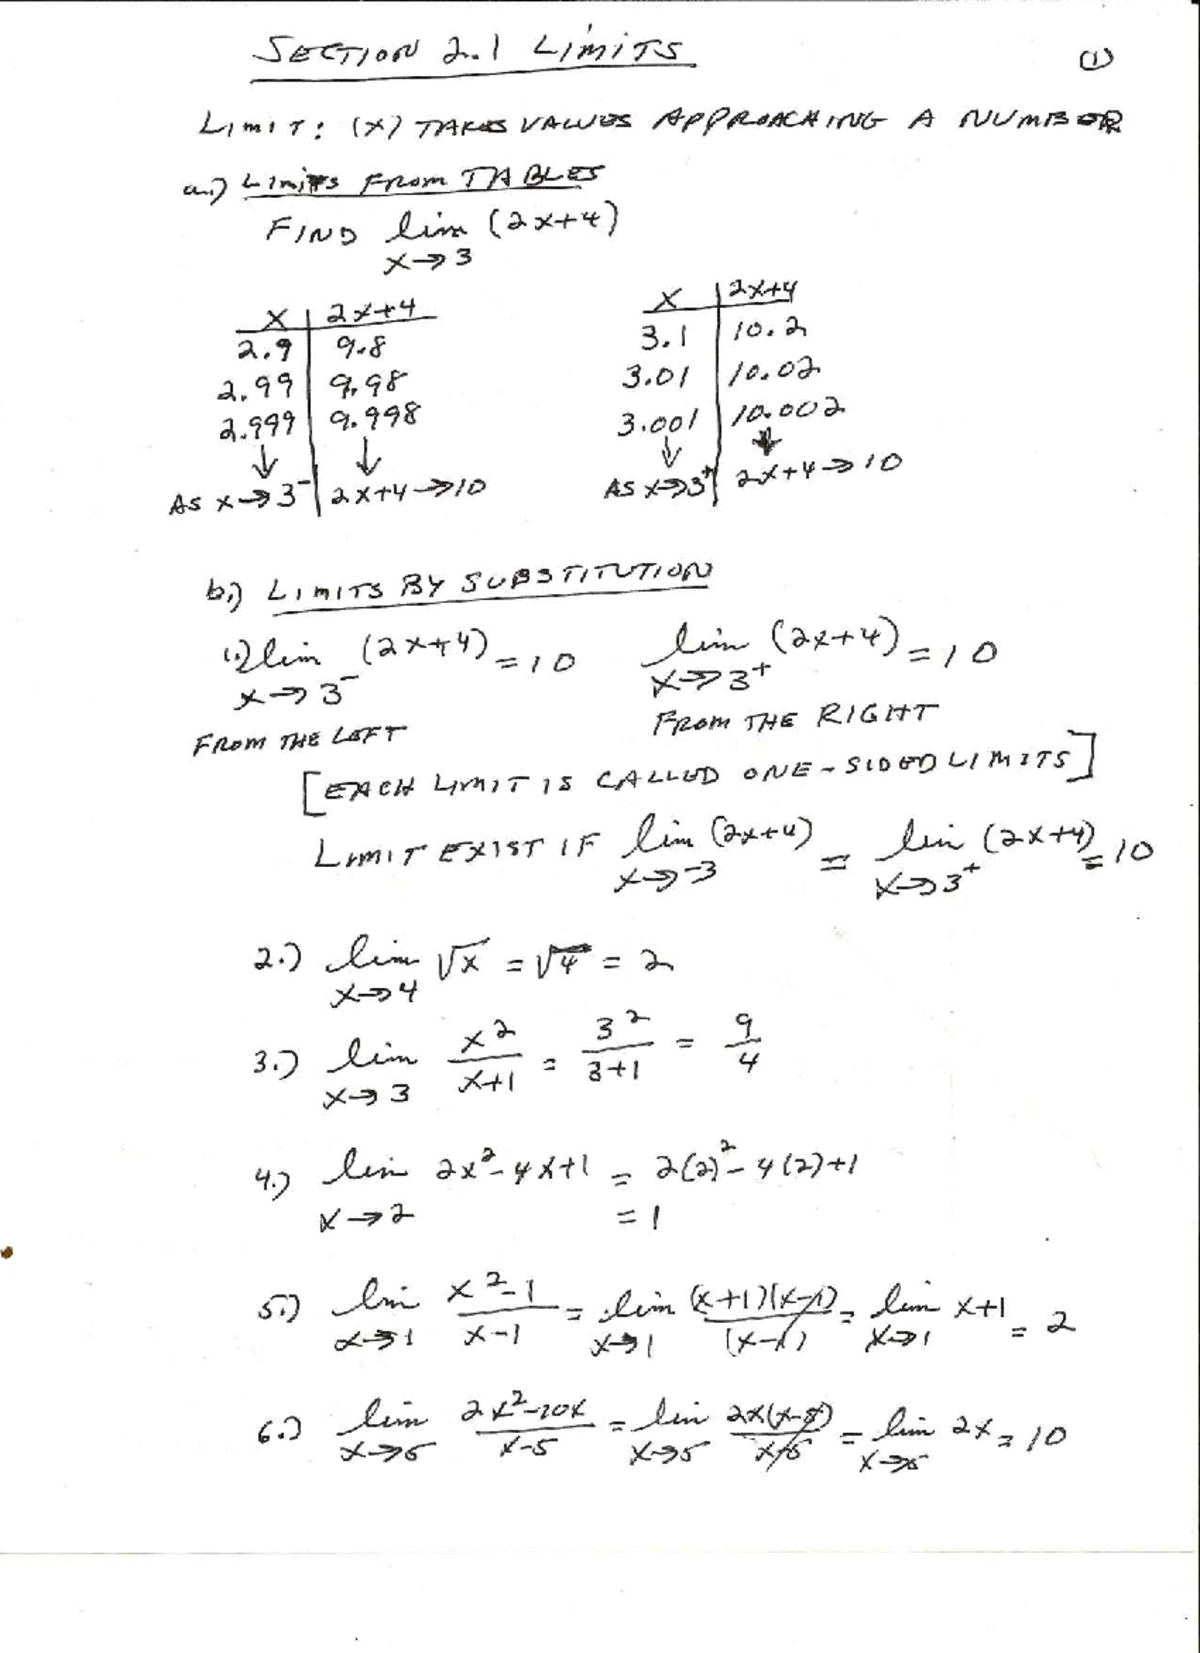 SECTION 2.1 LIMITS
(1)
LIMIT: (X) TAKES VALUES APPROACHING A NUMBER
a.) LIMITS FROM TABLES
FIND lim (2x+4)
x→3
x | 2x+4
2.9 | 9.8
2.99 | 9.98
2.999 | 9.998
↓ ↓
AS x→3⁻ | 2x+4→10
x | 2x+4
3.1 | 10.2
3.01 | 10.02
3.001 | 10.002
↓ ↓
AS x→3⁺ | 2x+4→10
b.) LIMITS BY SUBSTITUTION
1.) lim (2x+4) = 10 lim (2x+4) = 10
x→3⁻ x→3⁺
FROM THE LEFT FROM THE RIGHT
[EACH LIMIT IS CALLED ONE-SIDED LIMITS]
LIMIT EXIST IF lim (2x+4) = lim (2x+4) = 10
x→-3 x→3⁺
2.) lim √x = √4 = 2
x→4
3.) lim x²/(x+1) = 3²/(3+1) = 9/4
x→3
4.) lim 2x²-4x+1 = 2(2)²-4(2)+1
x→2 = 1
5.) lim (x²-1)/(x-1) = lim (x+1)(x-1)/(x-1) = lim x+1 = 2
x→1 x→1 x→1
6.) lim (2x²-10x)/(x-5) = lim 2x(x-5)/(x-5) = lim 2x = 10
x→5 x→5 x→5